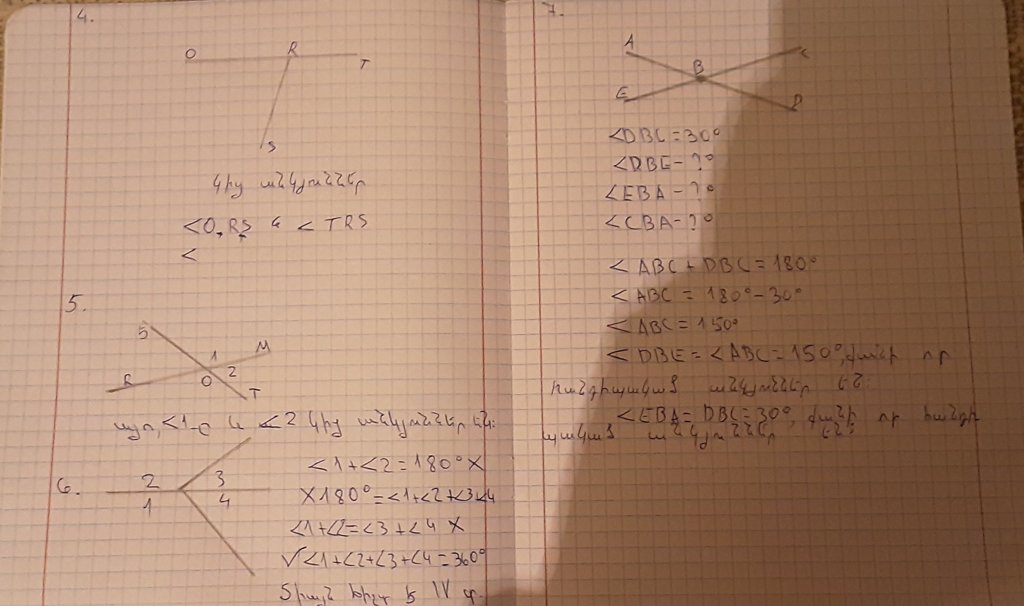 4.
O R T
S
կից անկյուններ
<ORS և < TRS
<
5.
S 1 M
R O 2 T
այո, <1-ը և <2 կից անկյուններ են:
6.
2 3
1 4
<1+<2=180° X
X180°=<1+<2+<3<4
<1+<2=<3+<4 X
√<1+<2+<3+<4=360°
Միայն ճիշտ է IV
7.
A B C
E D
<DBC=30°
<DBE-?°
<EBA-?°
<CBA-?°
< ABC+DBC=180°
< ABC = 180°-30°
< ABC=150°
< DBE=<ABC=150°, քանի որ
հակադիր անկյուններ են:
<EBA=DBC=30°, քանի որ
անկյուններ են: